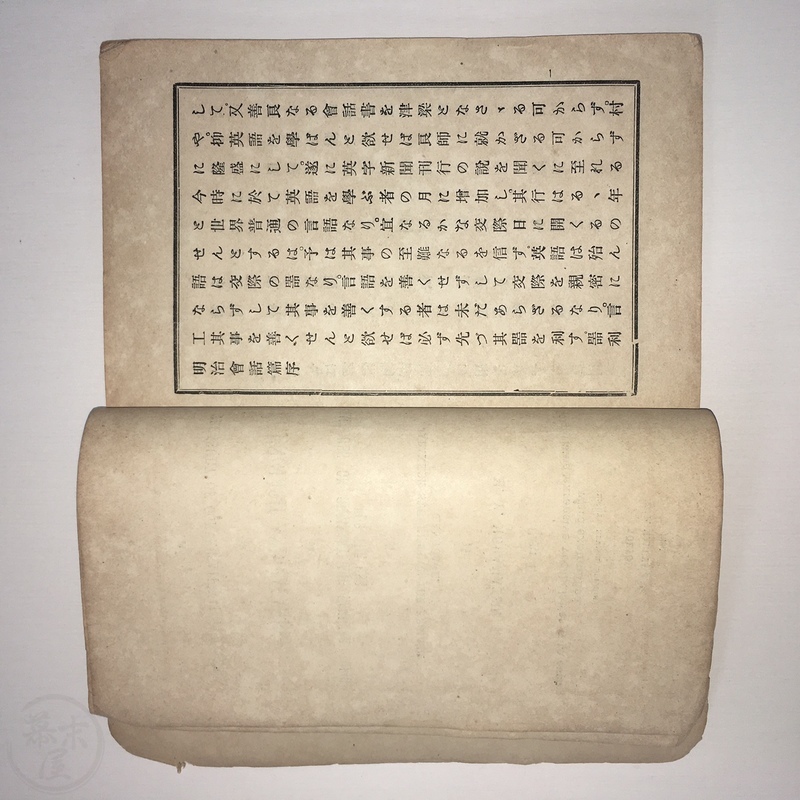 明治會話篇序
工其事を善くせんと欲せば必ず先づ其器を利す。器利
ならずして其事を善くする者は未だあらざるなり。言
語は交際の器なり。言語を善くせずして交際を親密に
せんとするは。予は其事の至難なるを信ず。英語は殆ん
と世界普通の言語なり。宜なるかな交際日に開くるの
今時に於て英語を學ぶ者の月に增加し。其行はるゝ年
に隆盛にして。遂に英字新聞刊行の說を聞くに至れる
や。抑英語を學ばんと欲せば良師に就かざる可からず
して。又善良なる會話書を津梁となさゝる可からず。村
幕末屋